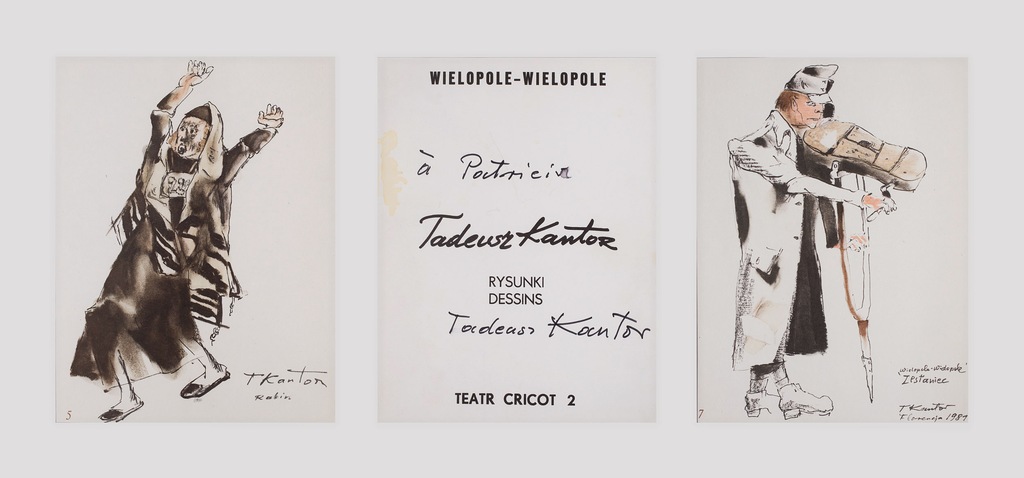 T Kantor
Rabin
5
WIELOPOLE-WIELOPOLE
à Patricia
Tadeusz Kantor
RYSUNKI
DESSINS
Tadeusz Kantor
TEATR CRICOT 2
"Wielopole-Wielopole"
Zesłaniec
T Kantor
Florencja 1981
7